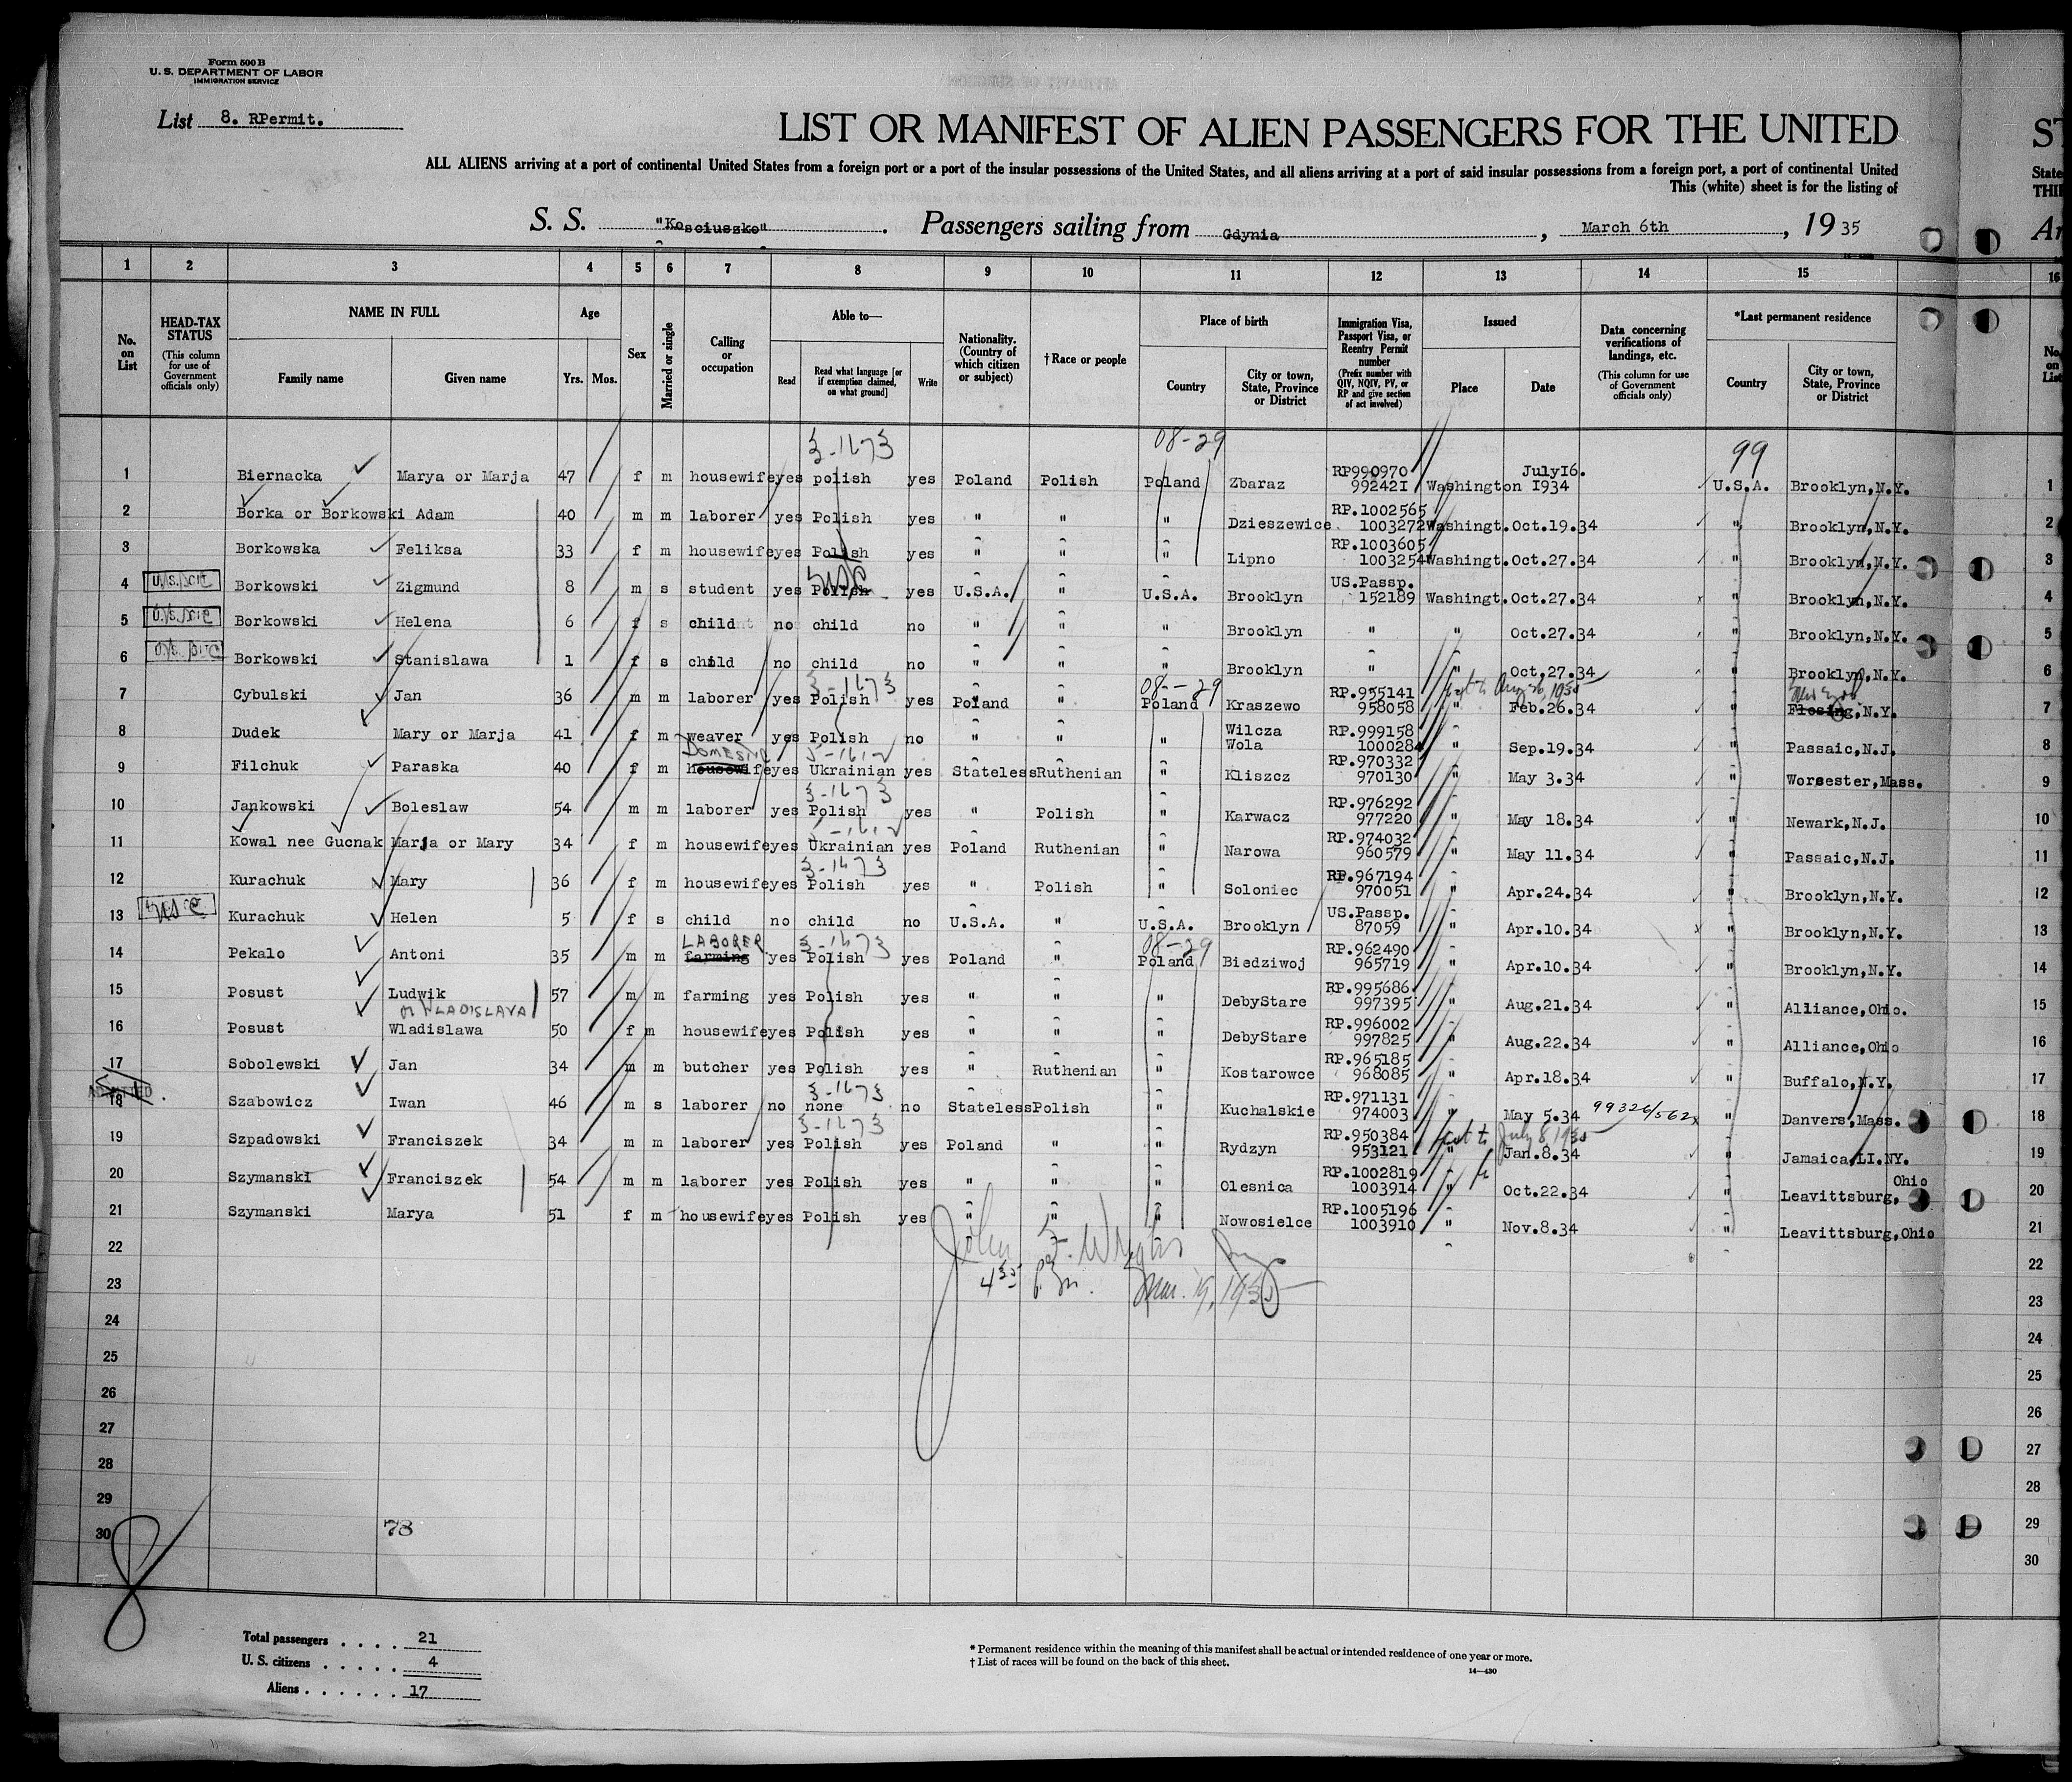 Form 500 B
U. S. DEPARTMENT OF LABOR
IMMIGRATION SERVICE
List 8. RPermit.
LIST OR MANIFEST OF ALIEN PASSENGERS FOR THE UNITED
ST
ALL ALIENS arriving at a port of continental United States from a foreign port or a port of the insular possessions of the United States, and all aliens arriving at a port of said insular possessions from a foreign port, a port of continental United
State
This (white) sheet is for the listing of
THI
S. S. "Kosciuszko". Passengers sailing from Gdynia, March 6th, 1935
Ar
1 2 3 4 5 6 7 8 9 10 11 12 13 14 15 16
No. on List
HEAD-TAX STATUS (This column for use of Government officials only)
NAME IN FULL Family name Given name
Age Yrs. Mos.
Sex
Married or single
Calling or occupation
Able to— Read Read what language [or if exemption claimed, on what ground] Write
Nationality. (Country of which citizen or subject)
† Race or people
Place of birth Country City or town, State, Province or District
Immigration Visa, Passport Visa, or Reentry Permit number (Prefix number with QIV, NQIV, PV, or RP and give section of act involved)
Issued Place Date
Data concerning verifications of landings, etc. (This column for use of Government officials only)
*Last permanent residence Country City or town, State, Province or District
No. on List
08-29 99
1 Biernacka Marya or Marja 47 f m housewife yes polish yes Poland Polish Poland Zbaraz RP990970 992421 Washington July16. 1934 U.S.A. Brooklyn,N.Y. 1
2 Borka or Borkowski Adam 40 m m laborer yes Polish yes " " " Dzieszewice RP.1002565 1003272 Washingt.Oct.19.34 " Brooklyn,N.Y. 2
3 Borkowska Feliksa 33 f m housewife yes Polish yes " " " Lipno RP.1003605 1003254 Washingt.Oct.27.34 " Brooklyn,N.Y. 3
4 Borkowski Zigmund 8 m s student yes Polish yes U.S.A. " U.S.A. Brooklyn US.Passp. 152189 Washingt.Oct.27.34 " Brooklyn,N.Y. 4
5 Borkowski Helena 6 f s child no child no " " " Brooklyn " " Oct.27.34 " Brooklyn,N.Y. 5
6 Borkowski Stanislawa 1 f s child no child no " " " Brooklyn " " Oct,27.34 " Brooklyn,N.Y. 6
08-29
7 Cybulski Jan 36 m m laborer yes Polish yes Poland " Poland Kraszewo RP.955141 958058 " Feb.26.34 " Flosing,N.Y. 7
8 Dudek Mary or Marja 41 f m weaver yes Polish no " " " Wilcza Wola RP.999158 100028 " Sep.19.34 " Passaic,N.J. 8
DOMESTIC
9 Filchuk Paraska 40 f m housewife yes Ukrainian yes Stateless Ruthenian " Kliszcz RP.970332 970130 " May 3.34 " Worcester,Mass. 9
10 Jankowski Boleslaw 54 m m laborer yes Polish yes " Polish " Karwacz RP.976292 977220 " May 18.34 " Newark,N.J. 10
11 Kowal nee Gucnak Marja or Mary 34 f m housewife yes Ukrainian yes Poland Ruthenian " Narowa RP.974032 960579 " May 11.34 " Passaic,N.J. 11
12 Kurachuk Mary 36 f m housewife yes Polish yes " Polish " Soloniec RP.967194 970051 " Apr.24.34 " Brooklyn,N.Y. 12
13 Kurachuk Helen 5 f s child no child no U.S.A. " U.S.A. Brooklyn US.Passp. 87059 " Apr.10.34 " Brooklyn,N.Y. 13
LABORER 08-29
14 Pekalo Antoni 35 m m farming yes Polish yes Poland " Poland Biedziwoj RP.962490 965719 " Apr.10.34 " Brooklyn,N.Y. 14
15 Posust Ludwik 57 m m farming yes Polish yes " " " DebyStare RP.995686 997395 " Aug.21.34 " Alliance,Ohio. 15
or VLADISLAVA
16 Posust Wladislawa 50 f m housewife yes Polish yes " " " DebyStare RP.996002 997825 " Aug.22.34 " Alliance,Ohio 16
17 Sobolewski Jan 34 m m butcher yes Polish yes " Ruthenian " Kostarowce RP.965185 968085 " Apr.18.34 " Buffalo,N.Y. 17
ADMITTED
18 Szabowicz Iwan 46 m s laborer no none no Stateless Polish " Kuchalskie RP.971131 974003 " May 5.34 99326/562 " Danvers,Mass. 18
19 Szpadowski Franciszek 34 m m laborer yes Polish yes Poland " " Rydzyn RP.950384 953121 " Jan.8.34 " Jamaica,LI.NY. 19
20 Szymanski Franciszek 54 m m laborer yes Polish yes " " " Olesnica RP.1002819 1003914 " Oct.22.34 " Leavittsburg, Ohio 20
21 Szymanski Marya 51 f m housewife yes Polish yes " " " Nowosielce RP.1005196 1003910 " Nov.8.34 " Leavittsburg,Ohio 21
22 22
23 23
24 24
25 25
26 26
27 27
28 28
29 29
30 30
78
8
Total passengers . . . . 21
U. S. citizens . . . . . 4
Aliens . . . . . . 17
* Permanent residence within the meaning of this manifest shall be actual or intended residence of one year or more.
† List of races will be found on the back of this sheet.
14—430